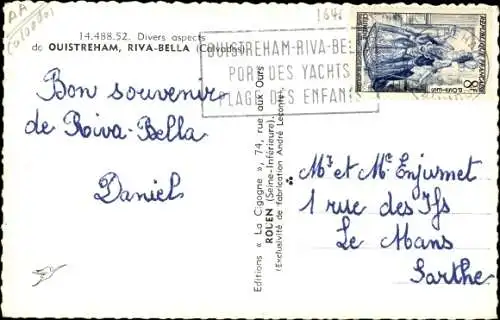 AA
(Calvados)
14.488.52. Divers aspects
de OUISTREHAM, RIVA-BELLA (Calvados)
Bon souvenir
de Riva-Bella
Daniel
Editions « La Cigogne », 74, rue aux Ours
ROUEN (Seine-Inférieure).
(Exclusivité de fabrication André Leconte).
1641
OUISTREHAM-RIVA-BEL
PORT DES YACHTS
PLAGE DES ENFANTS
REPUBLIQUE FRANCAISE
8F
Mr et Me Enjumet
1 rue des Ifs
Le Mans
Sarthe